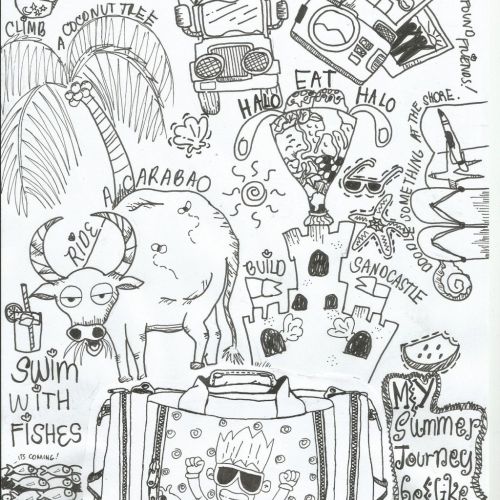 CLIMB
A COCONUT TREE
EAT
HALO HALO
DOODLE SOMETHING AT THE SHORE.
RIDE
A CARABAO
BUILD
SANDCASTLE
SWIM
WITH
FISHES
ITS COMING!
MY
Summer
Journey